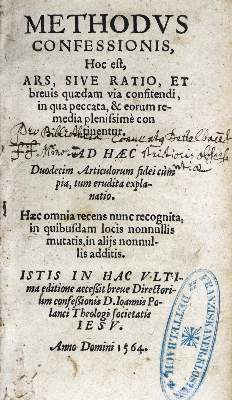 METHODVS
CONFESSIONIS,
Hoc est,
ARS, SIVE RATIO, ET
breuis quædam via confitendi,
in qua peccata, & eorum re-
media plenissimè con
tinentur.
AD HÆC
Duodecim Articulorum fidei cùm
pia, tum erudita expla-
natio.
Hæc omnia recens nunc recognita,
in quibusdam locis nonnullis
mutatis, in alijs nonnul-
lis additis.
ISTIS IN HAC VLTI-
ma editione accessit breue Directori-
um confessionis D. Ioannis Po-
lanci Theologi societatis
IESV.
Anno Domini 1564.
FRANZISKANERKLOSTER
DETTELBACH